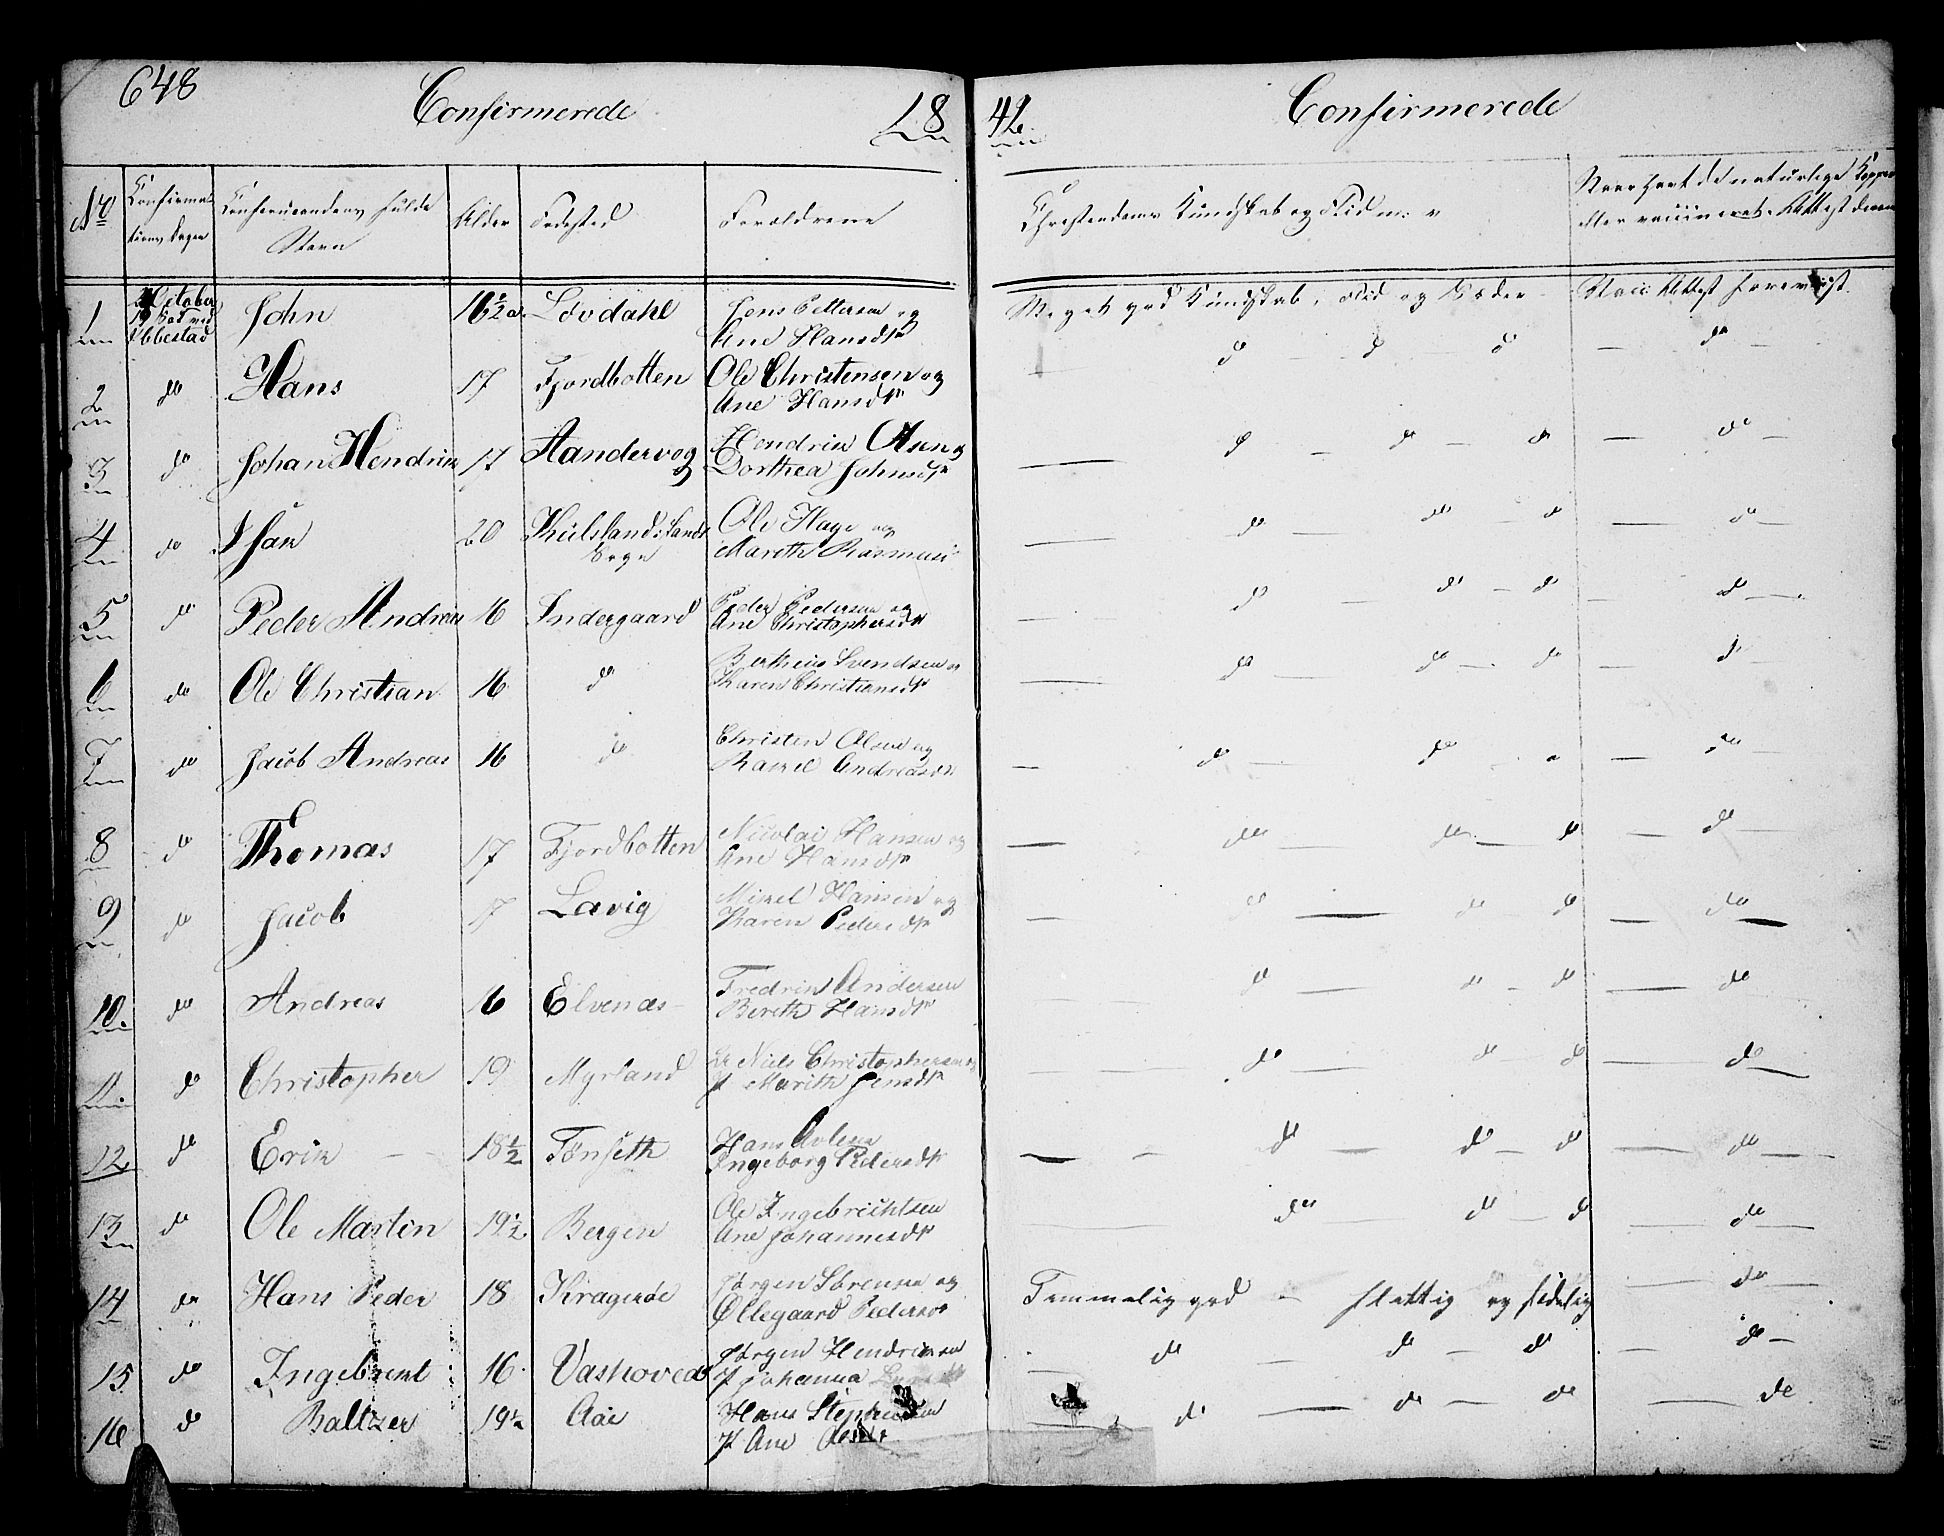 648
Confirmerede
18
42
Confirmerede
No
Confirma-
tions Dagen
Confirmandens fulde
Navn
Alder
Fødested
Forældrene
Christendoms Kundskab og Flid m: v
Naar havt de naturlige Kopper
eller vaccineret. Attest derom
1 October Ibbestad John 16½ Løvdahl Jens Pettersen og
Ane Hansdtr
Meget god Kundskab, Flid og Sæder Vacc: Attest forevist.
2 do Hans 17 Fjordbotten Ole Christensen og
Ane Hansdtr
do do do do
3 do Johan Hendrik 17 Aandervog Hendrik Olsen og
Dorthea Johnsdtr
do do do do
4 do Isak 20 Ole Hage og
Sogn Mareth Rasmusd
do do do do
5 do Peder Andreas 16 Indergaard Peder Pedersen og
Ane Christophersdtr
do do do do
6 do Ole Christian 16 do Bertheus Svendsen og
Karen Christiansdtr
do do do do
7 do Jacob Andreas 16 do Christen Olsen og
Rakel Andreasdtr
do do do
8 do Thomas 17 Fjordbotten Nicolai Hansen og
Ane Hansdtr
do do do do
9 do Jacob 17 Lavig Mikel Hansen og
Karen Pedersdtr
do do do do
10. do Andreas 16 Elvenæs Fredrik Andersen
Bereth Hansdtr
do do do do
11. do Christopher 19 Myrland Niels Christophersen og
Marith Jensdtr
do do do do
12 do Erik 18½ Tønseth Hans
Ingeborg Pedersdtr
do do do do
13 do Ole Martin 19½ Bergen Ole Ingebrichtsen
Ane Johannesdtr
do do do do
14 do Hans Peder 18 Kragerøe Jørgen Sørensen og
Øllegaard Pedersdtr
Temmelig god flittig og sædelig do
15 do Ingebrekt 16 Vashoved Jørgen Hendriksen
Johanna
do do do do
16 do Baltzer 19½ Aae Hans Stephensen
Ane
do do do do